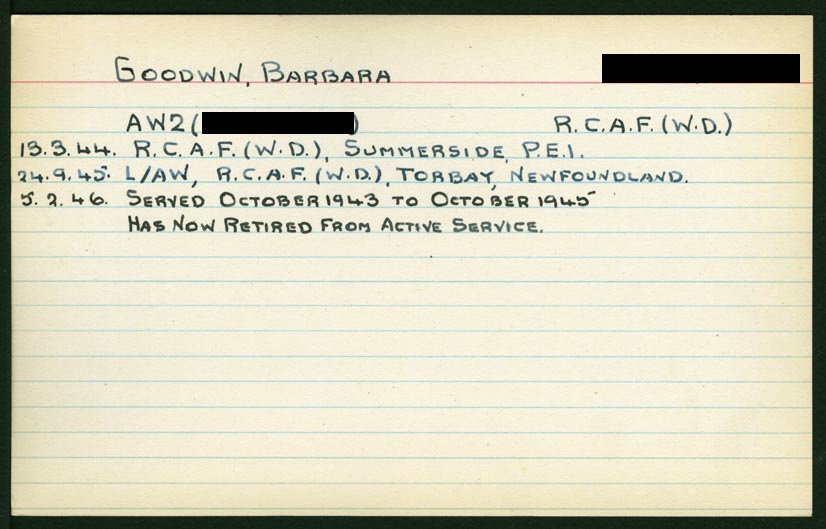 GOODWIN, BARBARA
AW2 ( ) R.C.A.F. (W.D.)
13.3.44. R.C.A.F. (W.D.), SUMMERSIDE, P.E.I.
24.9.45. L/AW, R.C.A.F. (W.D.), TORBAY, NEWFOUNDLAND.
5.2.46. SERVED OCTOBER 1943 TO OCTOBER 1945
HAS NOW RETIRED FROM ACTIVE SERVICE.